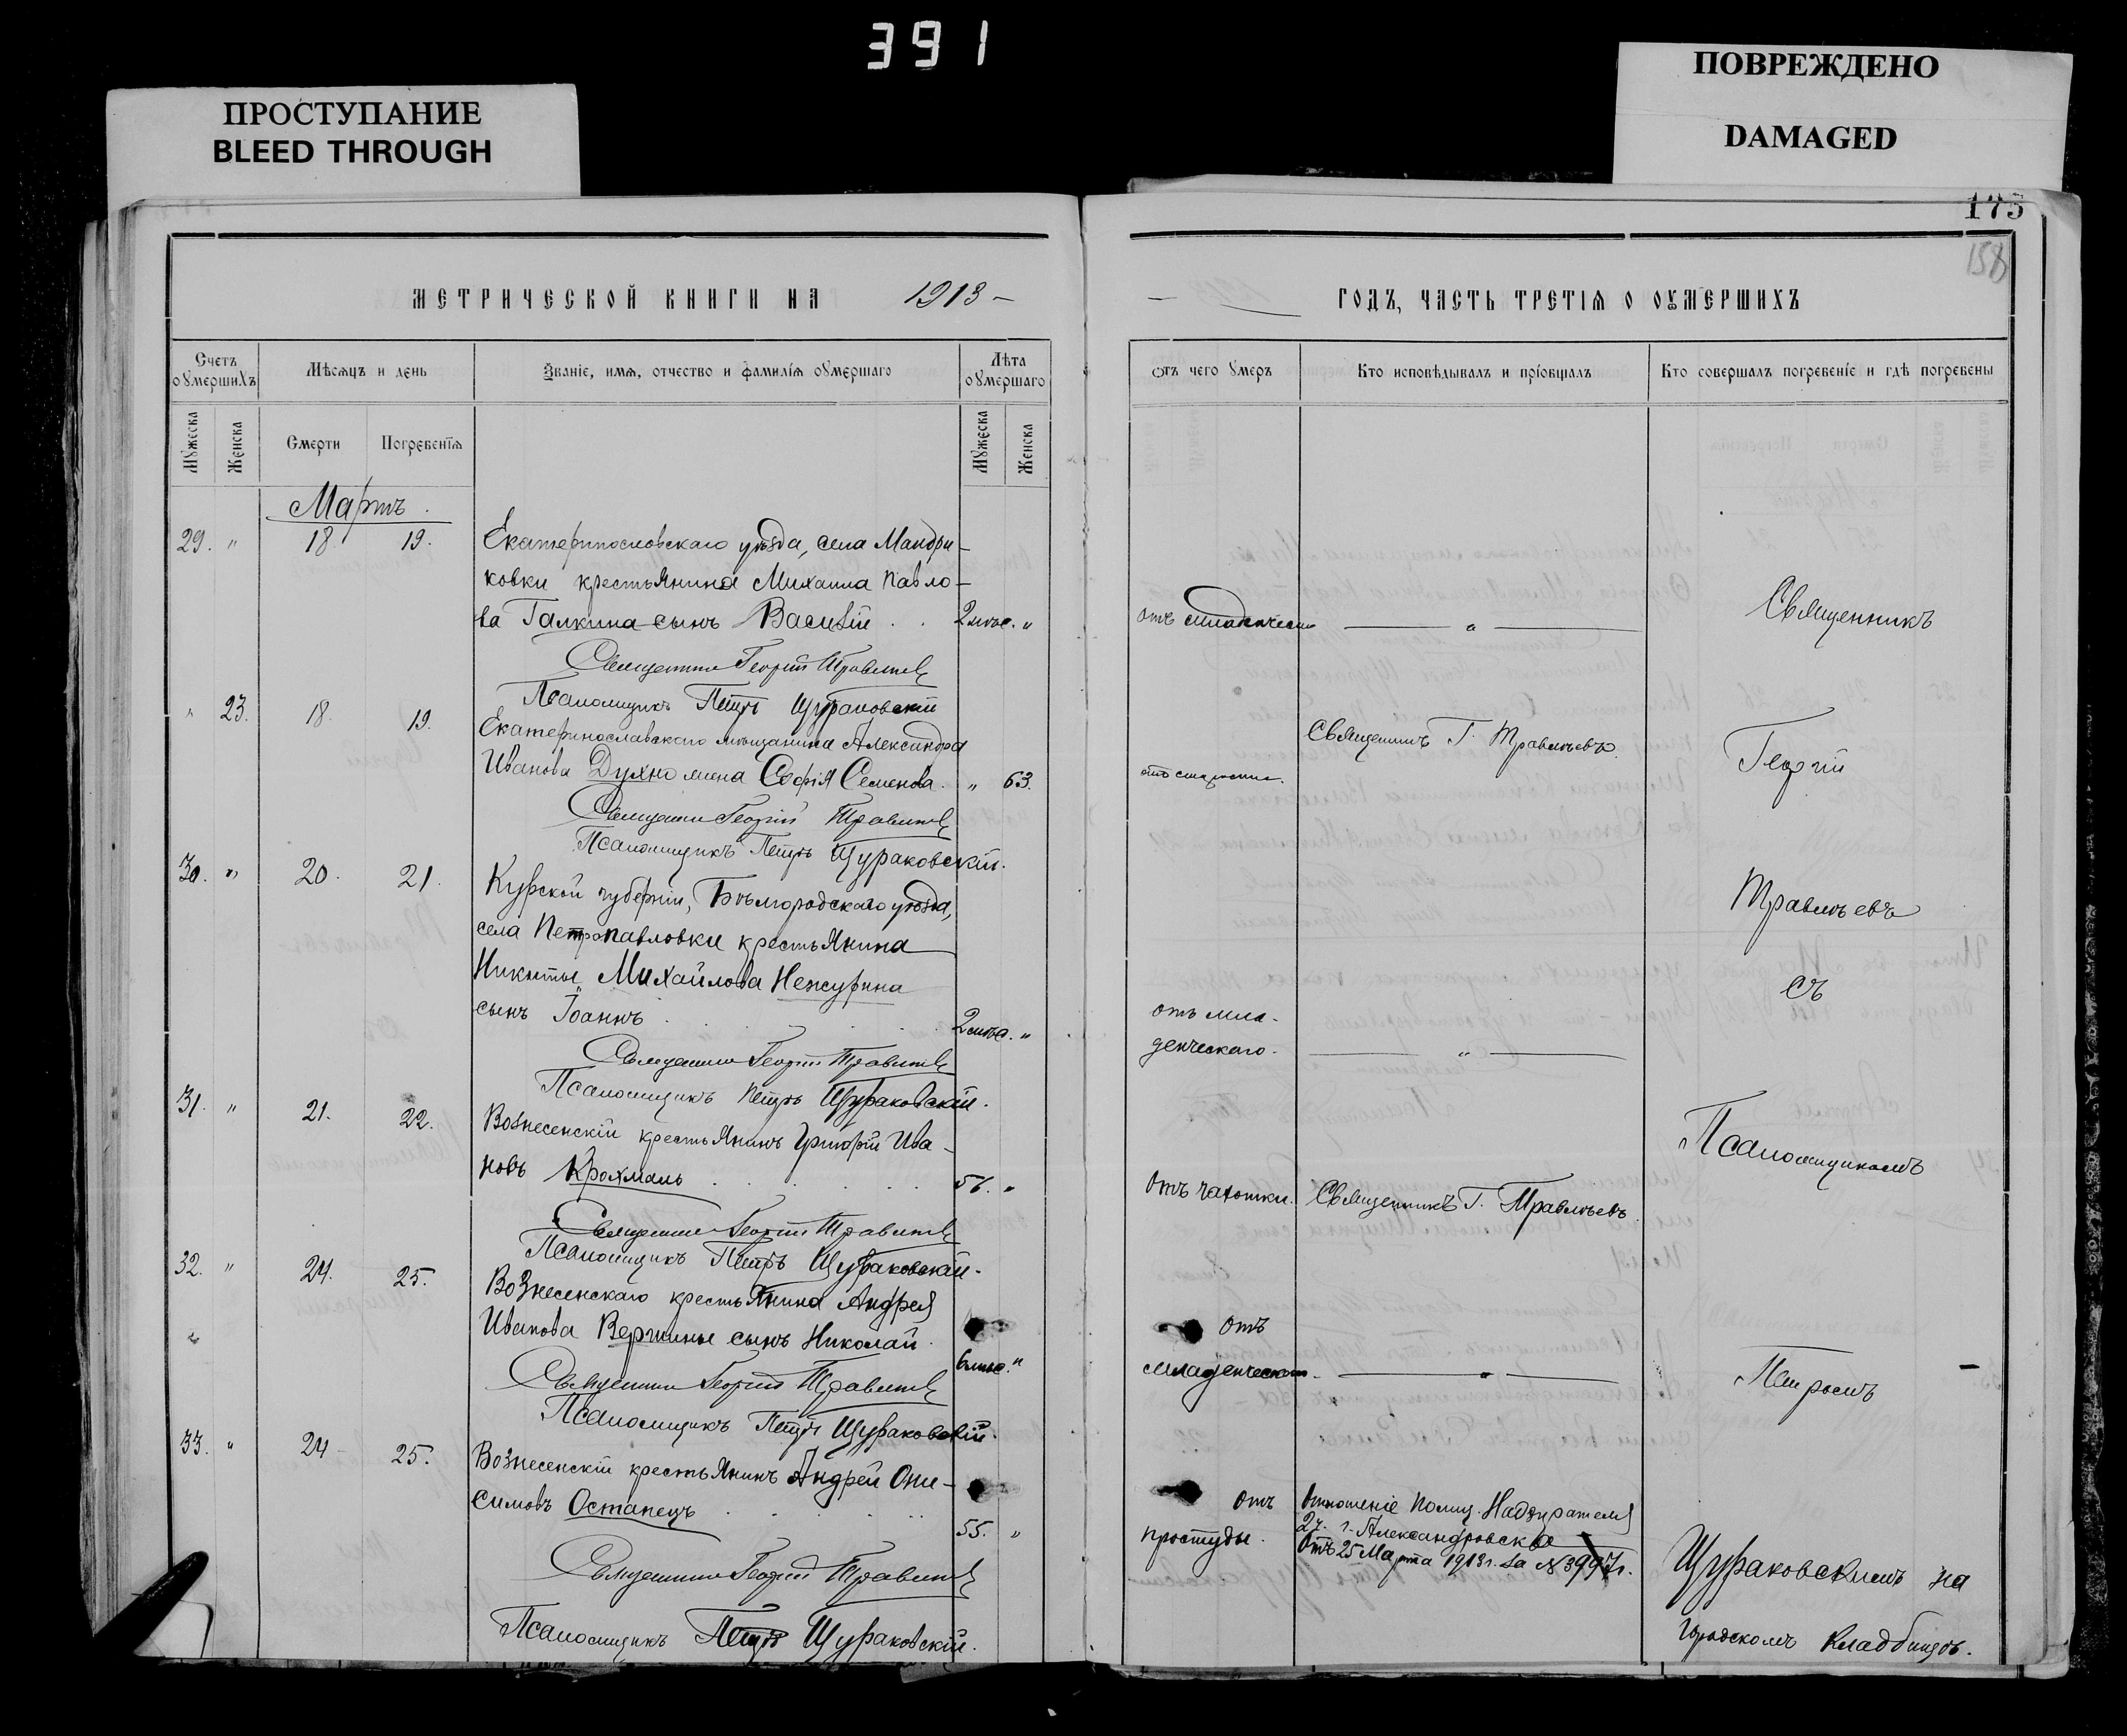 391
ПРОСТУПАНИЕ
BLEED THROUGH
ПОВРЕЖДЕНО
DAMAGED
175
158
МЕТРИЧЕСКОЙ КНИГИ НА 1913 –
Счетъ оумершихъ
Мѣсяцъ и день
Званіе, имя, отчество и фамилія оумершаго
Лѣта оумершаго
Мужеска
Женска
Смерти
Погребенія
Мужеска
Женска
Мартъ.
29. " 18. 19. Екатеринославскаго уѣзда, села Мандри-
ковки крестьянина Михаила Павло-
ва Галкина сынъ Василій . . 2 мѣс. "
Священникъ Георгій Травлѣевъ
Псаломщикъ Петръ Щураковскій
" 23. 18. 19. Екатеринославскаго мѣщанина Александра
Иванова Духно жена Софія Семенова. " 63.
Священникъ Георгій Травлѣевъ
Псаломщикъ Петръ Щураковскій.
30. " 20. 21. Курской губерніи, Бѣлгородскаго уѣзда,
села Петропавловки крестьянина
Никиты Михайлова Нежурина
сынъ Іоаннъ . . . . . 2 мѣс. "
Священникъ Георгій Травлѣевъ
Псаломщикъ Петръ Щураковскій.
31. " 21. 22. Вознесенскій крестьянинъ Григорій Ива-
новъ Крохмаль . . . . . 51. "
Священникъ Георгій Травлѣевъ
Псаломщикъ Петръ Щураковскій.
32. " 24. 25. Вознесенскаго крестьянина Андрея
Иванова Вершины сынъ Николай.
6 мѣс. "
Священникъ Георгій Травлѣевъ
Псаломщикъ Петръ Щураковскій.
33. " 24 25. Вознесенскій крестьянинъ Андрей Они-
симовъ Остапецъ . . . . . 55. "
Священникъ Георгій Травлѣевъ
Псаломщикъ Петръ Щураковскій.
– ГОДЪ, ЧАСТЬ ТРЕТІЯ О ОУМЕРШИХЪ
Отъ чего умеръ
Кто исповѣдывалъ и пріобщалъ
Кто совершалъ погребеніе и гдѣ погребены
отъ младенческ. — " —
отъ старости. Священникъ Г. Травлѣевъ.
отъ мла-
денческаго. — " —
Отъ чахотки. Священникъ Г. Травлѣевъ.
отъ
младенческаго. — " —
отъ
простуды.
Отношеніе Полиц. Надзирателя
2 ч. г. Александровска
отъ 25 Марта 1913 г. за №
Священникъ
Георгій
Травлѣевъ
съ
Псаломщикомъ
Петромъ –
Щураковскимъ на
городскомъ кладбищѣ.